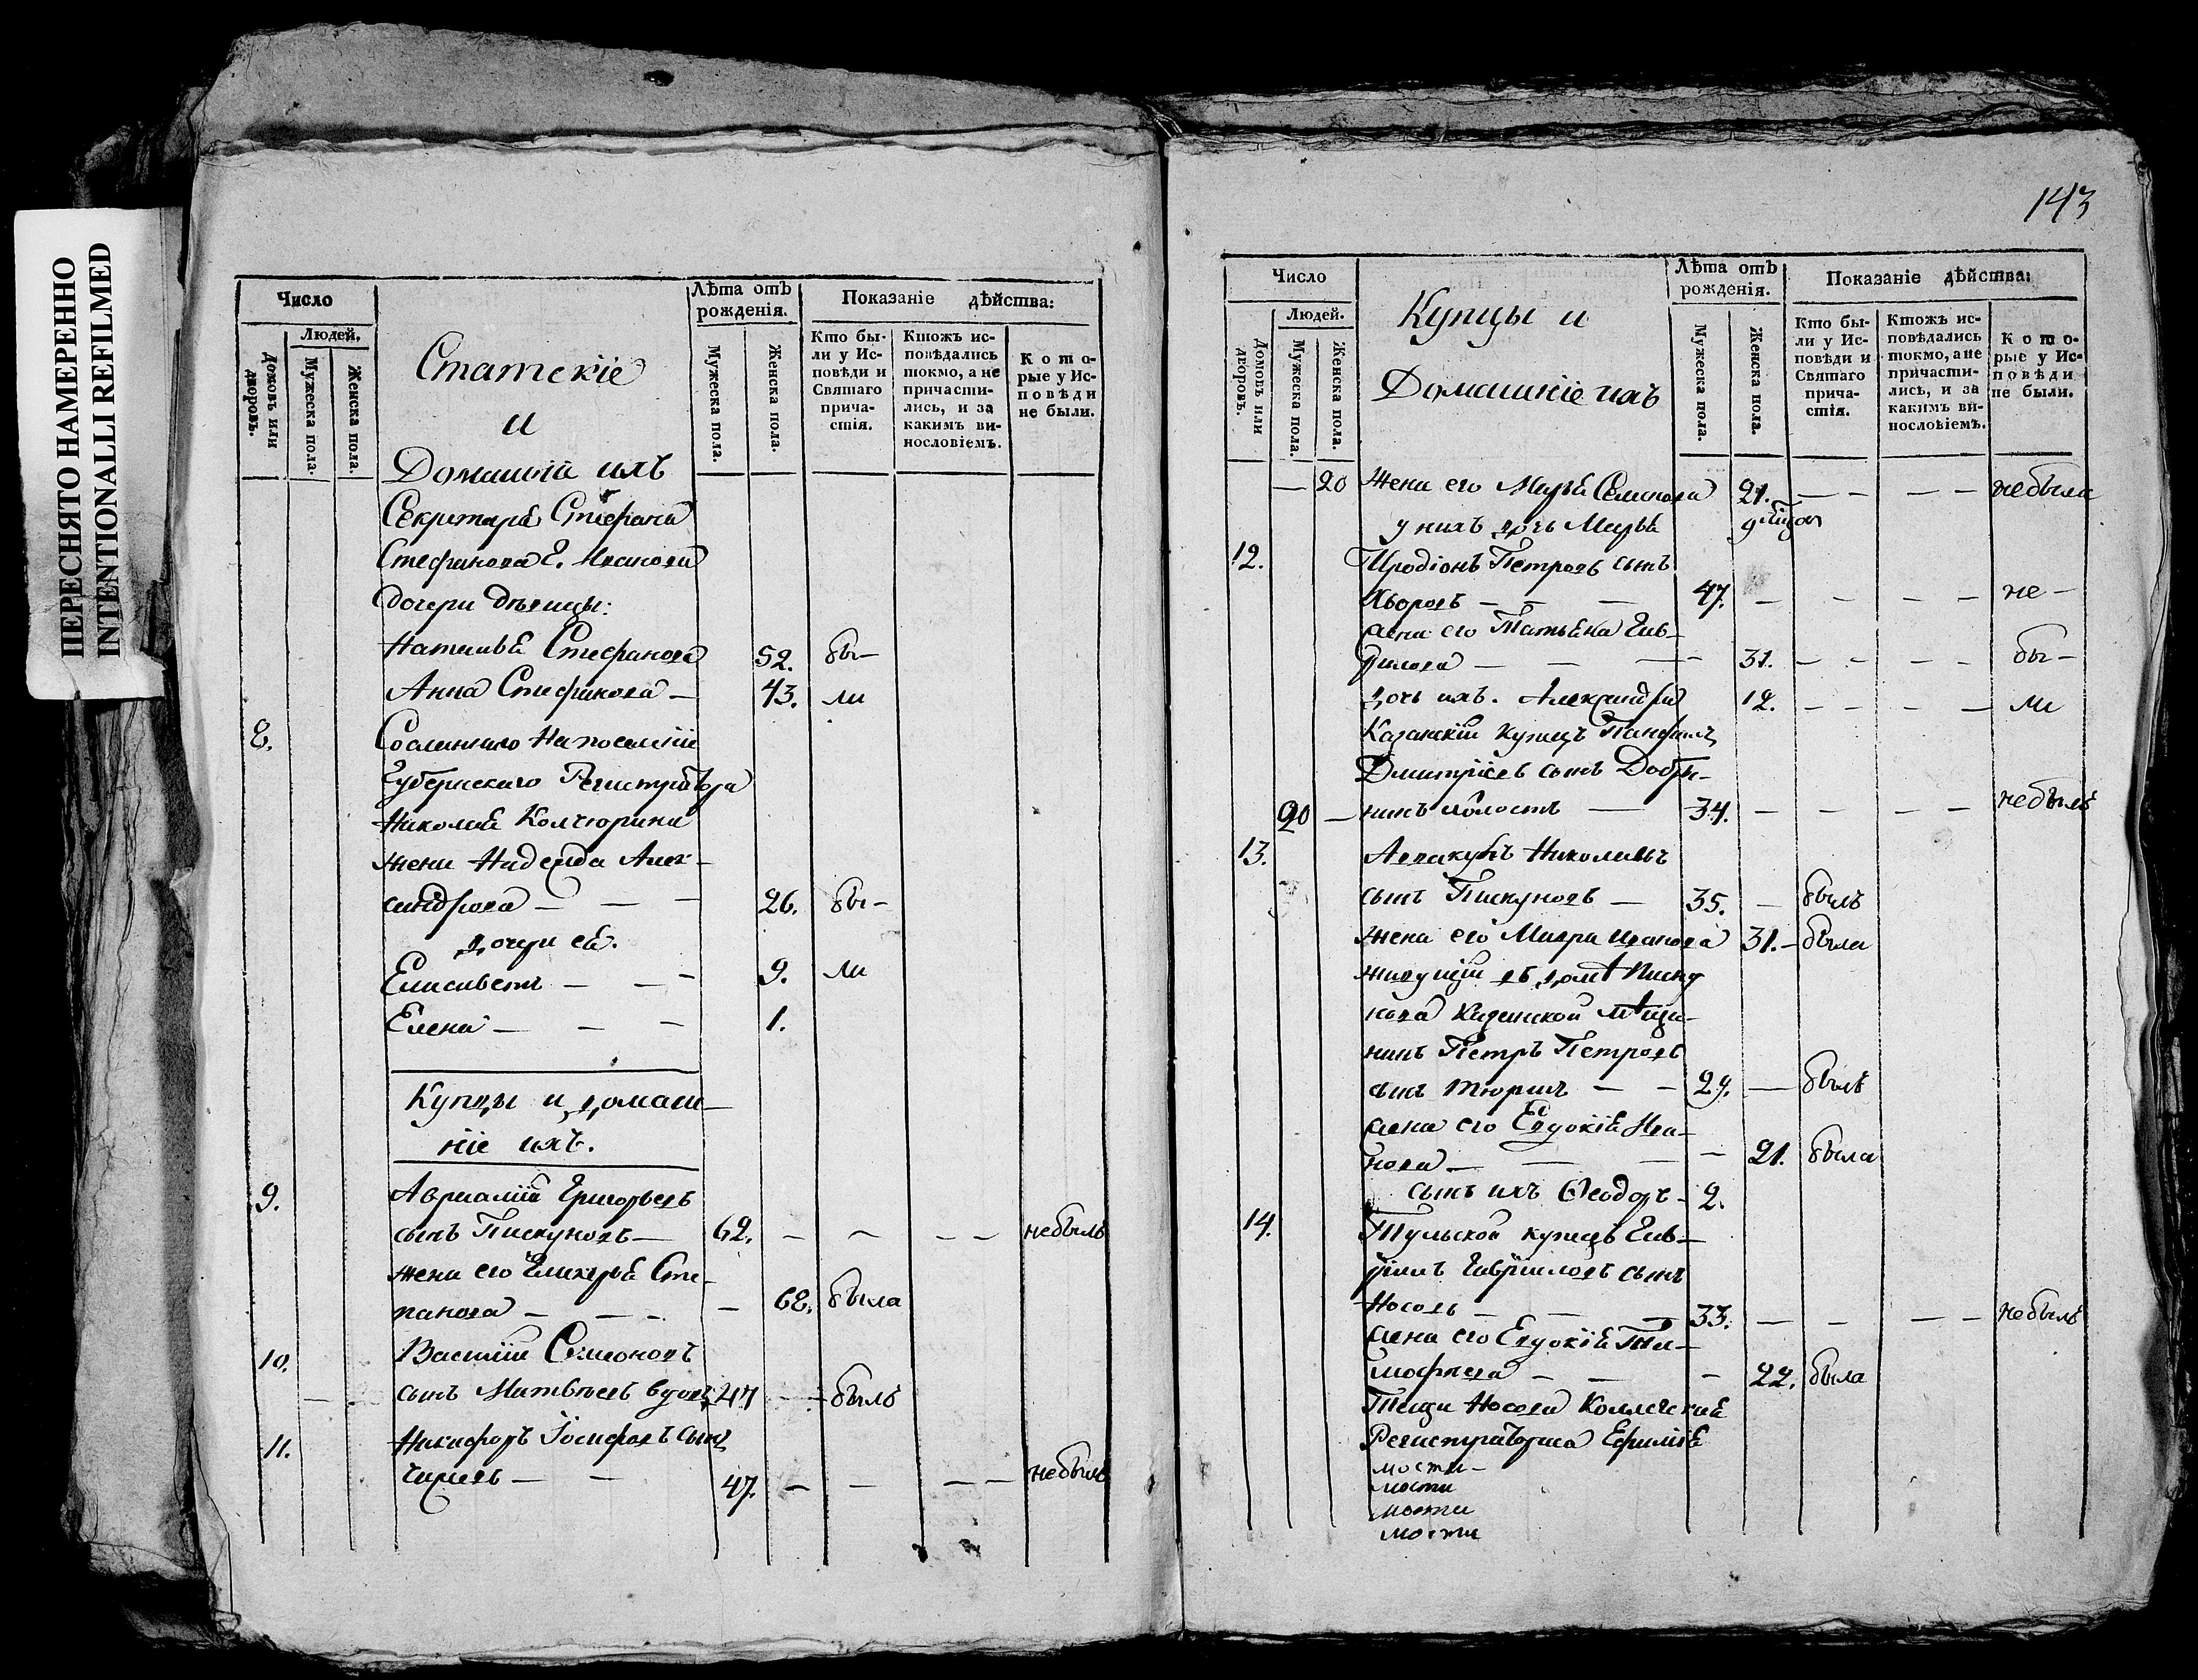 ПЕРЕСНЯТО НАМЕРЕННО
INTENTIONALLI REFILMED
Число
Людей.
Домовъ или дворовъ.
Мужеска пола.
Женска пола.
Статскіе
и
Домашнія ихъ
Лѣта отъ рожденія.
Мужеска пола.
Женска пола.
Показаніе дѣйства:
Кто были у Исповѣди и Святаго причастія.
Ктожъ исповѣдались токмо, а не причастились, и за какимъ винословіемъ.
Которые у Исповѣди не были.
Секретаря Стефана
Стефанова Иванова
дочери дѣвицы:
Наталья Стефанова 52. бы–
Анна Стефанова – 43. ли
8. Сосланнаго на поселеніе
Губернскаго Регистратора
Николая Колчюрина
жена Надежда Алек–
сандрова – – – 26. бы–
дочери ея.
Елисаветъ – – – 9. ли
Елена – – – 1.
Купцы и домаш–
ніе ихъ.
9. Григорьевъ
сынъ Пискуновъ – 62. – – – – небылъ
жена его Гликерья Сте–
панова – – – – 68. была
10. Василій Семеновъ
сынъ Матвѣевъ вдовъ 47 – – былъ
11. Никифоръ Іосифовъ сынъ
47. – – – – небылъ
143
Число
Людей.
Домовъ или дворовъ.
Мужеска пола.
Женска пола.
Купцы и
Домашніе ихъ
Лѣта отъ рожденія.
Мужеска пола.
Женска пола.
Показаніе дѣйства:
Кто были у Исповѣди и Святаго причастія.
Ктожъ исповѣдались токмо, а не причастились, и за какимъ винословіемъ.
Которые у Исповѣди не были.
– 20 Жена его Марья Семенова 21. – – – – небыла
у нихъ дочь Марья 9
12. Иродіонъ Петровъ сынъ
– – – 47. – – – – не –
жена его Татьяна Гав–
рилова – – – – 31. – – – – бы –
дочь ихъ. Александра 12. – – – – ли
Казанскій купецъ Панфилъ
Дмитріевъ сынъ Добры–
20 – нинъ холостъ – 34. – – – – небылъ
13. Аввакумъ Николаевъ
сынъ Пискуновъ – 35. – былъ
жена его Мавра Иванова 31. – была
живущій въ домѣ Писку
нова мѣща–
нинъ Петръ Петровъ
сынъ Тюринъ – – 29. – былъ
жена его Евдокія Ива–
нова – – – – 21. была
сынъ ихъ Ѳеодоръ – 2.
14. Тульской купецъ Гав–
рилъ Гавриловъ сынъ
Носовъ – – – 33. – – – – небылъ
жена его Евдокія Ти–
мофѣева – – – 22. была
Теща Носова Коллежская
Регистраторша Ефимія